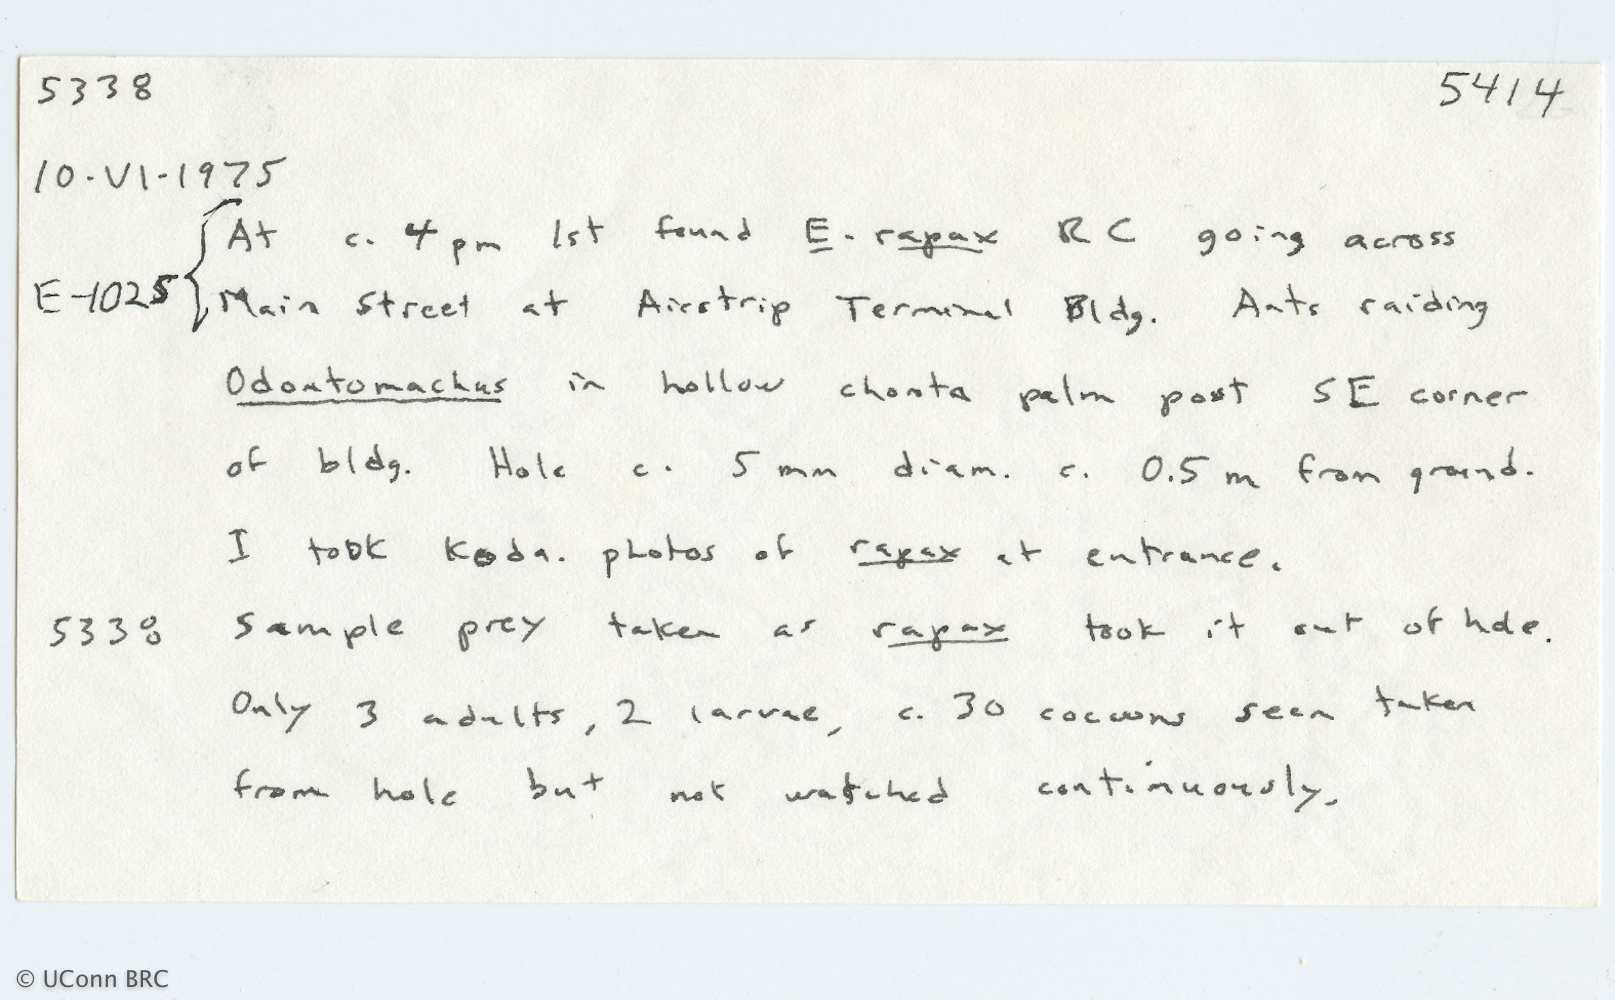 5338 5414
10-VI-1975
At c. 4 pm 1st found E. rapax RC going across
E-1025 Main Street at Airstrip Terminal Bldg. Ants raiding
Odontomachus in hollow chonta palm post SE corner
of bldg. Hole c. 5 mm diam. c. 0.5 m from ground.
I took Koda. photos of rapax at entrance.
5338 Sample prey taken as rapax took it out of hole.
Only 3 adults, 2 larvae, c. 30 cocoons seen taken
from hole but not watched continuously.
© UConn BRC